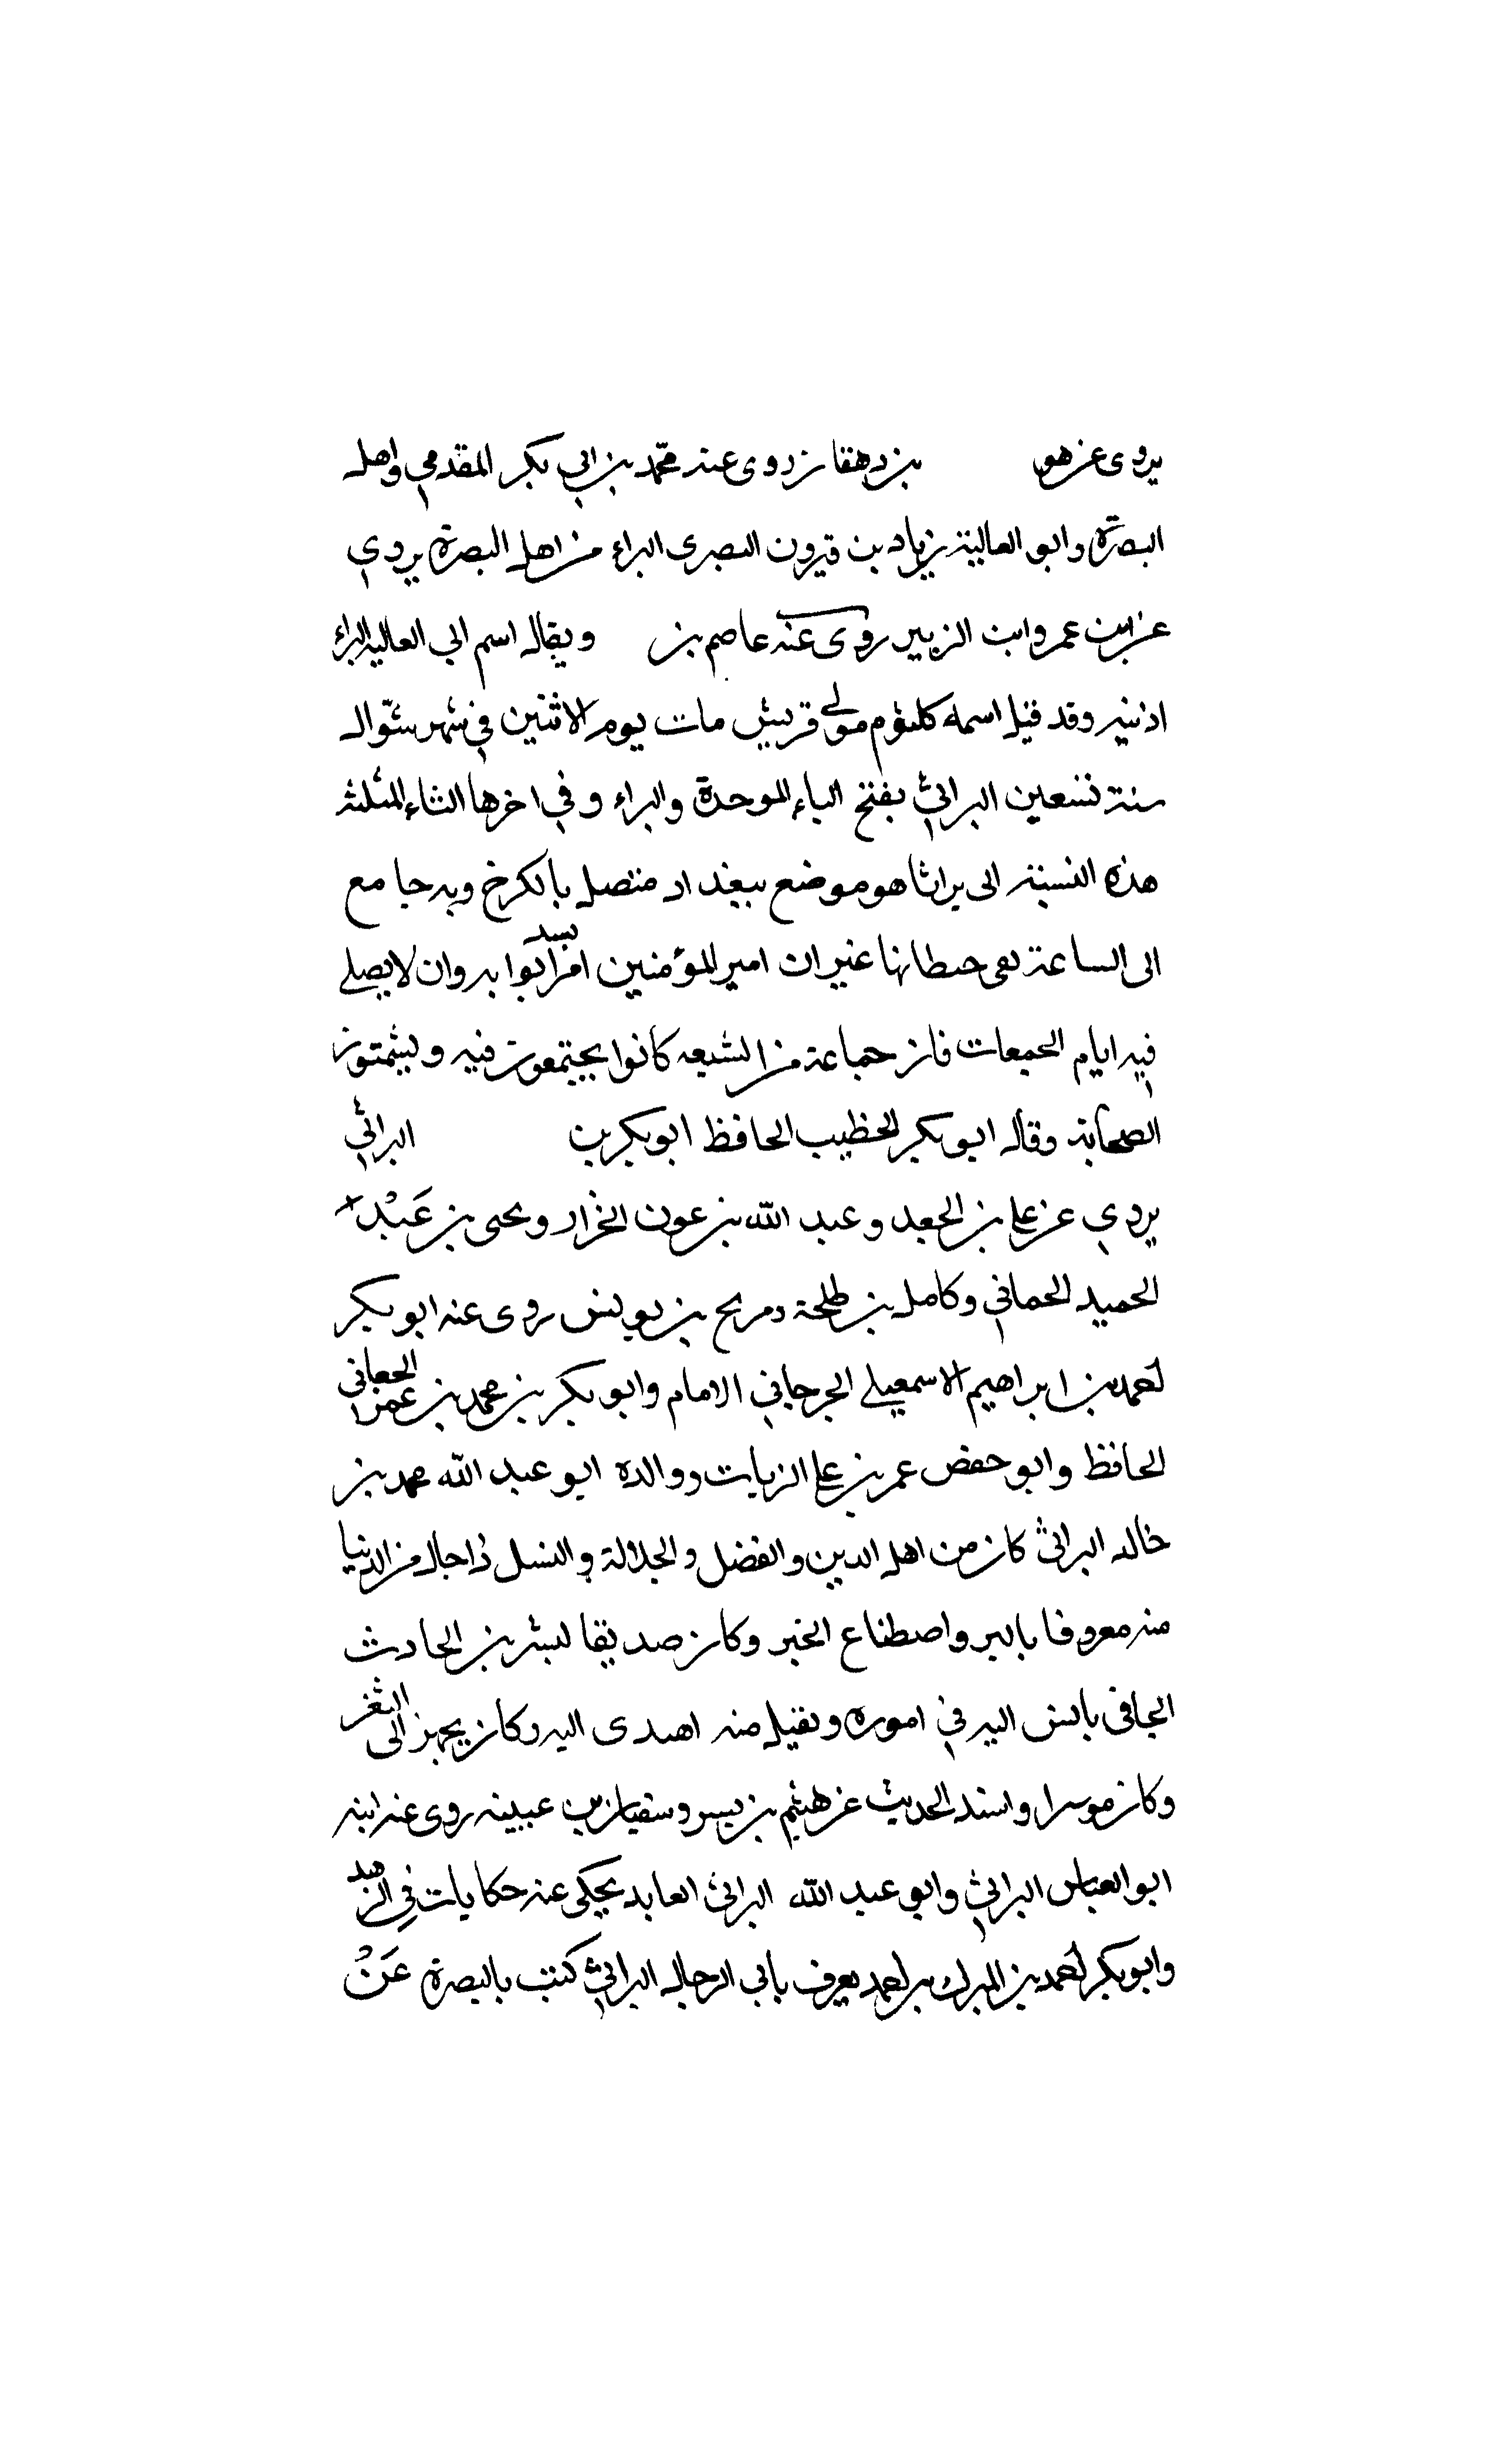 يروى عن هو بن دهقان روى عنه محمد بن ابي بكر المقدمي واهل
البصرة وابو العالية زياد بن فيرون البصرى البراء من اهل البصرة يروي
عن ابن عمر وابن الزبير روى عنه عاصم بن ويقال اسم ابي العاليه البراء
اذنيه وقد قيل اسمه كلثوم مولى قريش مات يوم الاثنين في شهر شوال
سنة تسعين البراثي بفتح الباء الموحدة والراء وفي اخرها الثاء المثلثة
هذه النسبة الى براثا هو موضع ببغداد متصل بالكرخ وبه جامع
الى الساعة بقى حيطانها غير ان امير المؤمنين امر بسد ابوابه وان لا يصلى
فيه ايام الجمعات فان جماعة من الشيعه كانوا يجتمعون فيه ويشتمون
الصحابة وقال ابو بكر الخطيب الحافظ ابو بكر بن البراثي
يروي عن علي بن الجعد وعبد الله بن عون الخراز ويحيى بن عَبْد
الحميد الحماني وكامل بن طلحة وسريج بن يونس روى عنه ابو بكر
احمد بن ابراهيم الاسمعيلي الجرجاني الامام وابو بكر بن محمد بن عمر الجعابي
الحافظ وابو حفص عمر بن علي الزيات ووالده ابو عبد الله محمد بن
خالد البراثي كان من اهل الدين والفضل والجلالة والنسل ذا حال من الدنيا
منه معروفا بالبر واصطناع الخير وكان صديقا لبشر بن الحارث
الحافى يانس اليه في اموره ويقبل منه اهدى اليه وكان يجهز الى الثغر
وكان موسرا واسند الحديث عن هشيم بن بسير وسفيان بن عيينه روى عنه ابنه
ابو العباس البراثي وابو عبد الله البراثي العابد يحكى عنه حكايات في الزهد
وابو بكر احمد بن المبرك بن احمد يعرف بابي الرجال البراثي كتب بالبصرة عَنْ